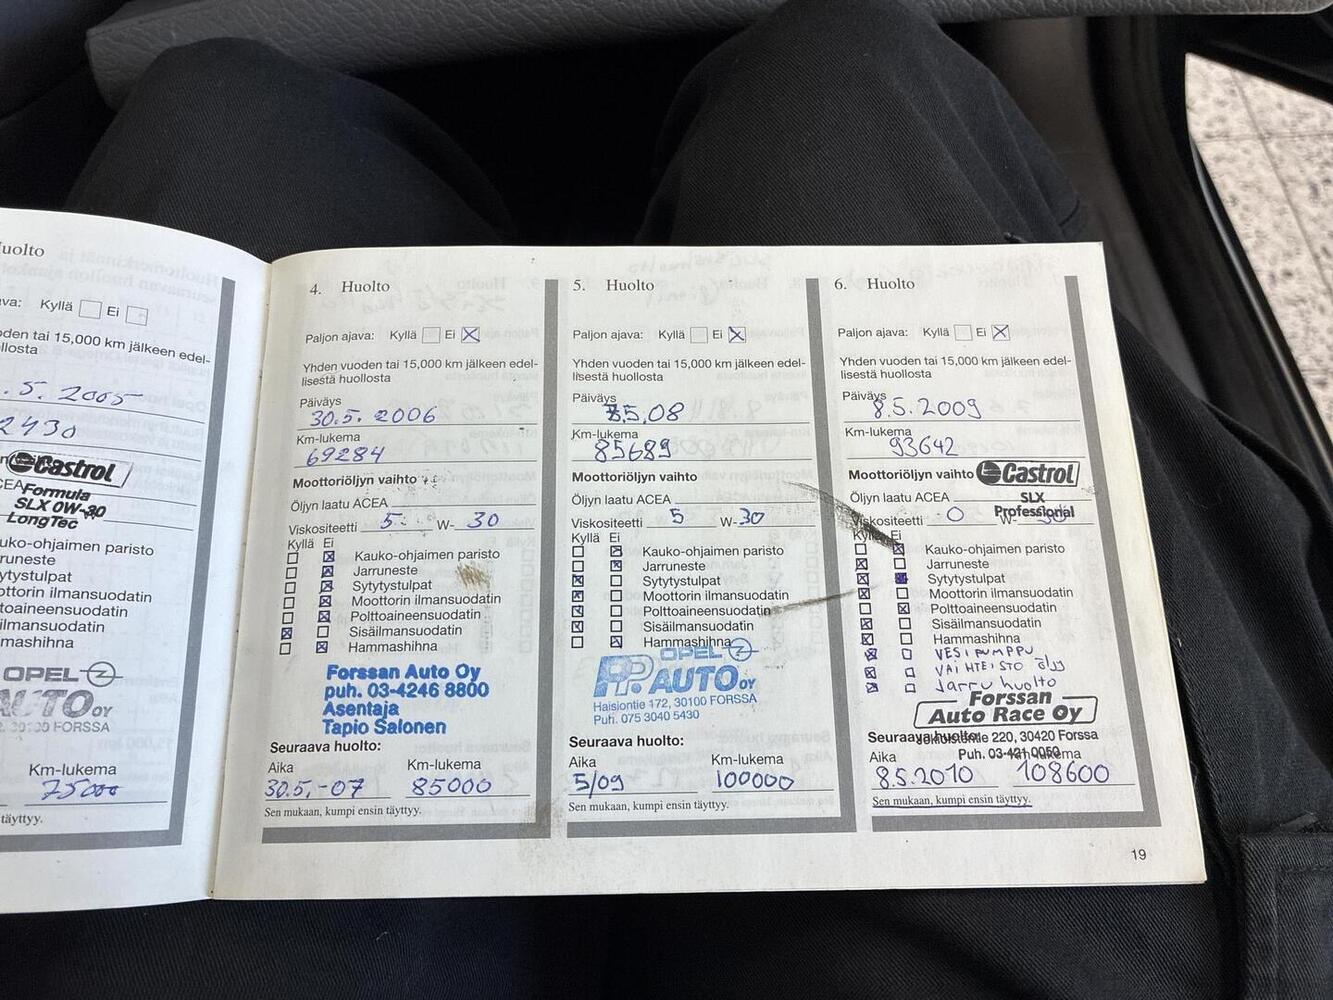 Huolto
Kyllä Ei
oden tai 15,000 km jälkeen edel-
llosta
.5.2005
2430
Castrol
Formula
SLX 0W-30
LongTec
uko-ohjaimen paristo
rruneste
ytystulpat
ottorin ilmansuodatin
toaineensuodatin
ilmansuodatin
mmashihna
OPEL
AUTO OY
FORSSA
Km-lukema
75000
täyttyy.
4. Huolto
Paljon ajava: Kyllä Ei
Yhden vuoden tai 15,000 km jälkeen edel-
lisestä huollosta
Päiväys
30.5.2006
Km-lukema
69284
Moottoriöljyn vaihto
Öljyn laatu ACEA
Viskositeetti 5 W- 30
Kyllä Ei
Kauko-ohjaimen paristo
Jarruneste
Sytytystulpat
Moottorin ilmansuodatin
Polttoaineensuodatin
Sisäilmansuodatin
Hammashihna
Forssan Auto Oy
puh. 03-4246 8800
Asentaja
Tapio Salonen
Seuraava huolto:
Aika Km-lukema
30.5.-07 85000
Sen mukaan, kumpi ensin täyttyy.
5. Huolto
Paljon ajava: Kyllä Ei
Yhden vuoden tai 15,000 km jälkeen edel-
lisestä huollosta
Päiväys
5.08
Km-lukema
85689
Moottoriöljyn vaihto
Öljyn laatu ACEA
Viskositeetti 5 W- 30
Kyllä Ei
Kauko-ohjaimen paristo
Jarruneste
Sytytystulpat
Moottorin ilmansuodatin
Polttoaineensuodatin
Sisäilmansuodatin
Hammashihna
OPEL
PP. AUTO OY
Haisiontie 172, 30100 FORSSA
Puh. 075 3040 5430
Seuraava huolto:
Aika Km-lukema
5/09 100000
Sen mukaan, kumpi ensin täyttyy.
6. Huolto
Paljon ajava: Kyllä Ei
Yhden vuoden tai 15,000 km jälkeen edel-
lisestä huollosta
Päiväys
8.5.2009
Km-lukema
93642
Moottoriöljyn vaihto Castrol
Öljyn laatu ACEA SLX
Professional
Viskositeetti 0 W- 30
Kyllä Ei
Kauko-ohjaimen paristo
Jarruneste
Sytytystulpat
Moottorin ilmansuodatin
Polttoaineensuodatin
Sisäilmansuodatin
Hammashihna
VESIPUMPPU
VAIHTEISTO öljy
Jarru huolto
Forssan
Auto Race Oy
220, 30420 Forssa
Puh. 03-421 0050
Seuraava huolto:
Aika Km-lukema
8.5.2010 108600
Sen mukaan, kumpi ensin täyttyy.
19